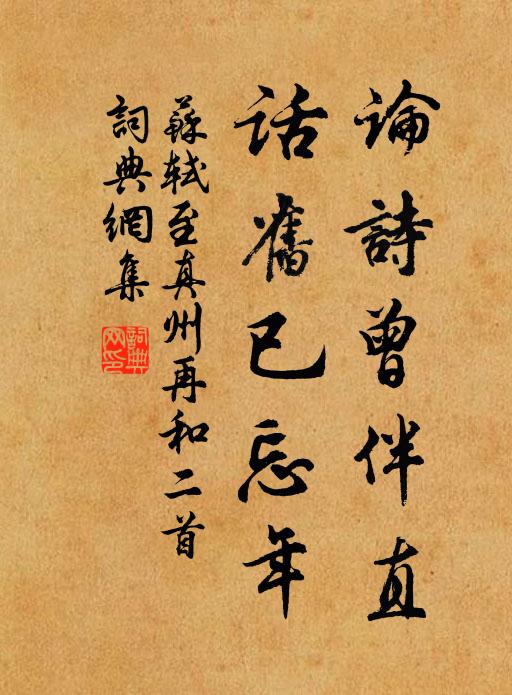 論詩曾伴直
話舊已忘年
蘇軾至真州再和二首
詞典網集
詞典網印